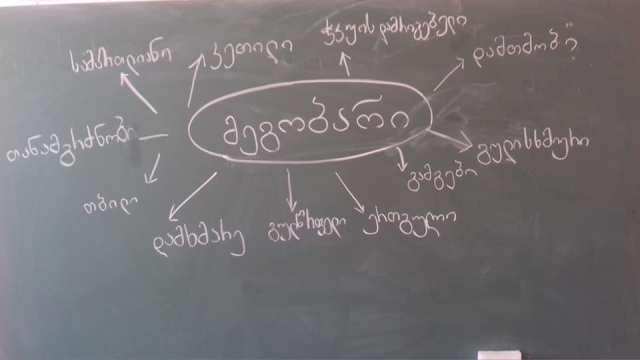 სამართლიანი
კეთილი
ჭკუის დამრიგებელი
დამთმობი
თანამგრძნობი
მეგობარი
გულისხმიერი
გამგები
თბილი
დამხმარე
გულწრფელი
ერთგული